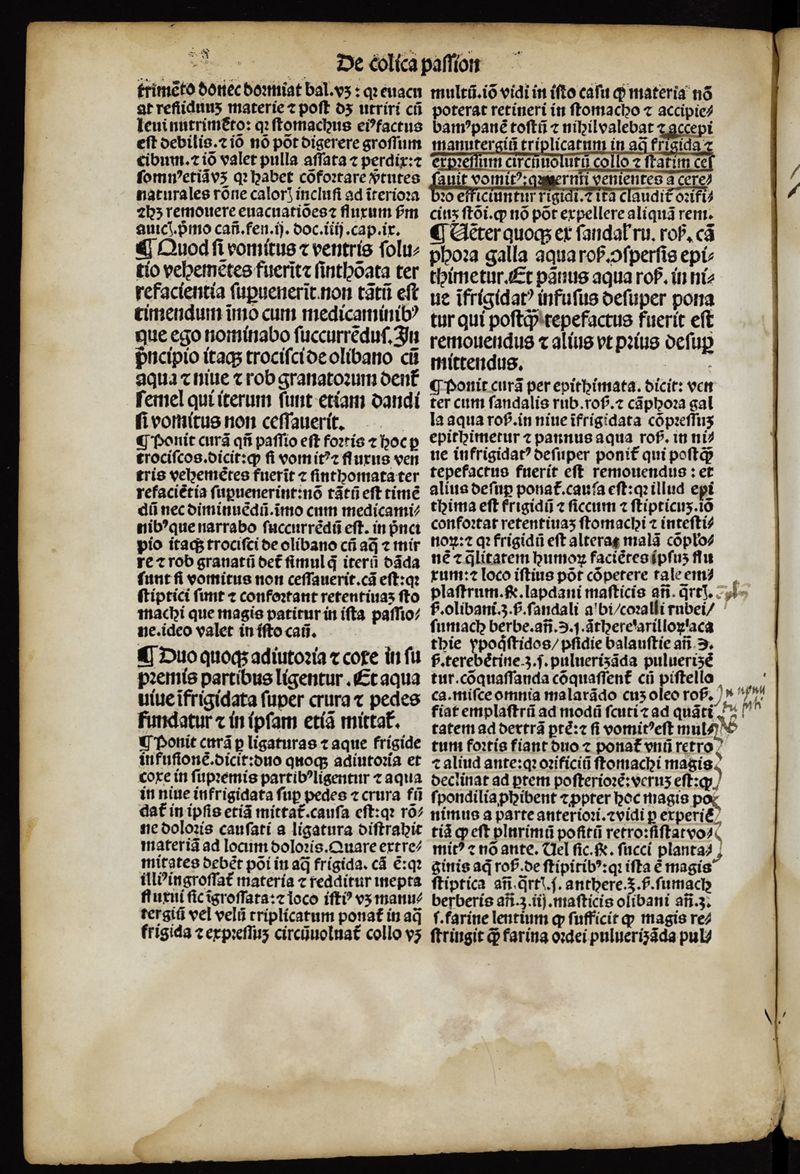 De colica passion
trimẽto donec dormiat bal.vꝫ : qꝛ euacu
at residuuꝫ materie ⁊ post dꝫ utriri cũ
leui nutrimẽto: qꝛ stomachus eiꝰ factus
est debilis.⁊ iõ nõ põt digerere grossum
cibum.⁊ iõ valet pulla assata ⁊ perdix:⁊
somnꝰetiãvꝫ qꝛ habet cõfortare v̾tutes
naturales rõne caloꝛꝭ inclusi ad ĩteriora
⁊hꝫ remouere euacuatiões⁊ fluxum ẜm
auicꝭ.pͥmo cañ.fen.ij. doc.iiij.cap.ix.
¶ Quod si vomitus ⁊ ventris solu⸗
tio vehemẽtes fuerĩt⁊ sinthõata ter
refacientia suꝑuenerĩt.non tãtũ est
timendum ĩmo cum medicaminibꝰ
que ego nominabo succurrẽduſ.In
pͥncipio itaqꝫ trocisci de olibano cũ
aqua ⁊ niue ⁊ rob granatorum denť
semel qui iterum sunt etiam dandi
si vomitus non cessauerit.
¶Ponit curã qñ passio est fortis ⁊ hoc ꝑ
trociscos.dicit:ꝙ si vomitꝰ⁊ fluxus ven
tris vehemẽtes fuerĩt ⁊ sinthomata ter
refaciẽtia suꝑuenerint:nõ tãtũ est timẽ
dũ nec diminuẽdũ.ĩmo cum medicami⸗
nibꝰque narrabo succurrẽdũ est. in pͥnci
pio itaqꝫ trocisci de olibano cũ aq̃ ⁊ mir
re ⁊ rob granatũ deť simul qͥ iterũ dãda
sunt si vomitus non cessauerit.cã est:qꝛ
stiptici sunt ⁊ confortant retentiuaꝫ sto
machi que magis patitur in ista passio⸗
ne.ideo valet in isto casũ.
¶Duo quoqꝫ adiutoria ⁊ coxe in su
premis partibus ligentur .Et aqua
uiue ĩfrigidata super crura ⁊ pedes
fundatur ⁊ in ipsam etiã mittať.
¶Ponit curã ꝑ ligaturas ⁊ aque frigide
infusionẽ.dicit:duo quoqꝫ adiutoria et
coxe in supremis partibꝰligentur ⁊ aqua
in niue infrigidata suꝑ pedes ⁊ crura fũ
dať in ipsis etiã mittať.causa est:qꝛ rõ⸗
ne doloris causati a ligatura distrahit
materiã ad locum doloris.Quare extre⸗
mitates debẽt põi in aq̃ frigida. cã ẽ:qꝛ
illiꝰingrossať materia ⁊ redditur inepta
fluxui sic ĩgrossata:⁊ loco istiꝰ vꝫ manu⸗
tergiũ vel velũ triplicatum ponať in aq̃
frigida ⁊ expressuꝫ circũuoluať collo vꝫ
multũ.iõ vidi in isto casu ꝙ materia nõ
poterat retineri in stomacho ⁊ accipie⸗
bamꝰpanẽ tostũ ⁊ nihil valebat ⁊ accepi
manutergiũ triplicatum in aq̃ frigida ⁊
expressum circũuolutũ collo ⁊ statim ces
sauit vomitꝰ:qꝛ venientes a cere⸗
bro efficiuntur rigidi.⁊ ita claudiť orifi⸗
ciuꝫ stõi.ꝙ nõ põt expellere aliquã rem.
¶Uẽter quoqꝫ ex sandaľ ru. roſ̃. cã
phora galla aqua roſ̃.ↄspersis epi⸗
thimetur.Et pãnus aqua roſ̃. in ni⸗
ue ĩfrigidatꝰ infusus desuper pona
tur qui postꝙ̃ tepefactus fuerit est
remouendus ⁊ alius vt prius desuꝑ
mittendus.
¶Ponit curã per epithimata. dicit: ven
ter cum sandalis rub.roſ̃.⁊ cãphora gal
la aqua roſ̃.in niue ĩfrigidata cõpressuꝫ
epithimetur ⁊ pannus aqua roſ̃. in ni⸗
ue infrigidatꝰ desuper poniť qui postꝙ̃
tepefactus fuerit est remouendus : et
alius desuꝑ ponať.causa est:qꝛ illud epi
thima est frigidũ ⁊ siccum ⁊ stipticuꝫ.iõ
confortat retentiuaꝫ stomachi ⁊ intesti⸗
noꝝ:⁊ qꝛ frigidũ est alterat malã cõplo̾⸗
nẽ ⁊ q̃litatem humoꝝ faciẽtes ipsuꝫ flu
xum:⁊ loco istius põt cõpetere tale em⸗
plastrum.℞.lapdani masticis añ. q̃rtꝭ.
ß.olibani.ʒ.ß.sandali aľbi/coralli rubei/
sumach berbe.añ.℈.j.ãthereꝭarilloꝝꝭaca
thie ypoq̃stidos/psidie balaustie añ ℈.
ß.terebẽtine.ʒ.ſ.pulueriꝫãda pulueriꝫẽ
tur.cõquassanda cõquassenť cũ pistello
ca.misce omnia malarãdo cuꝫ oleo roſ̃.
fiat emplastrũ ad modũ scuti ⁊ ad quãti
tatem ad dextrã ꝑtẽ:⁊ si vomitꝰest mul⸗
tum fortis fiant duo ⁊ ponať vnũ retro
⁊ aliud ante:qꝛ orificiũ stomachi magis
declinat ad ꝑtem posteriorẽ:veruꝫ est:ꝙ
spondilia ꝓhibent ⁊ ꝓpter hoc magis po
nimus a parte anteriori.⁊ vidi ꝑ experiẽ
tiã ꝙ est plurimũ positũ retro:sistat vo⸗
mitꝰ ⁊ nõ ante. Uel sic.℞. succi planta⸗
ginis aq̃ roſ̃.de stipitibꝰ:qꝛ ista ẽ magis
stiptica añ.q̃rtꝭ.ſ. anthere.ʒ.ß.sumach
berberis añ.ʒ.iij.masticis olibani añ.ʒ.
ſ.farine lentium ꝙ sufficit ꝙ magis re⸗
stringit ꝙ̃ farina ordei pulueriꝫãda pul⸗